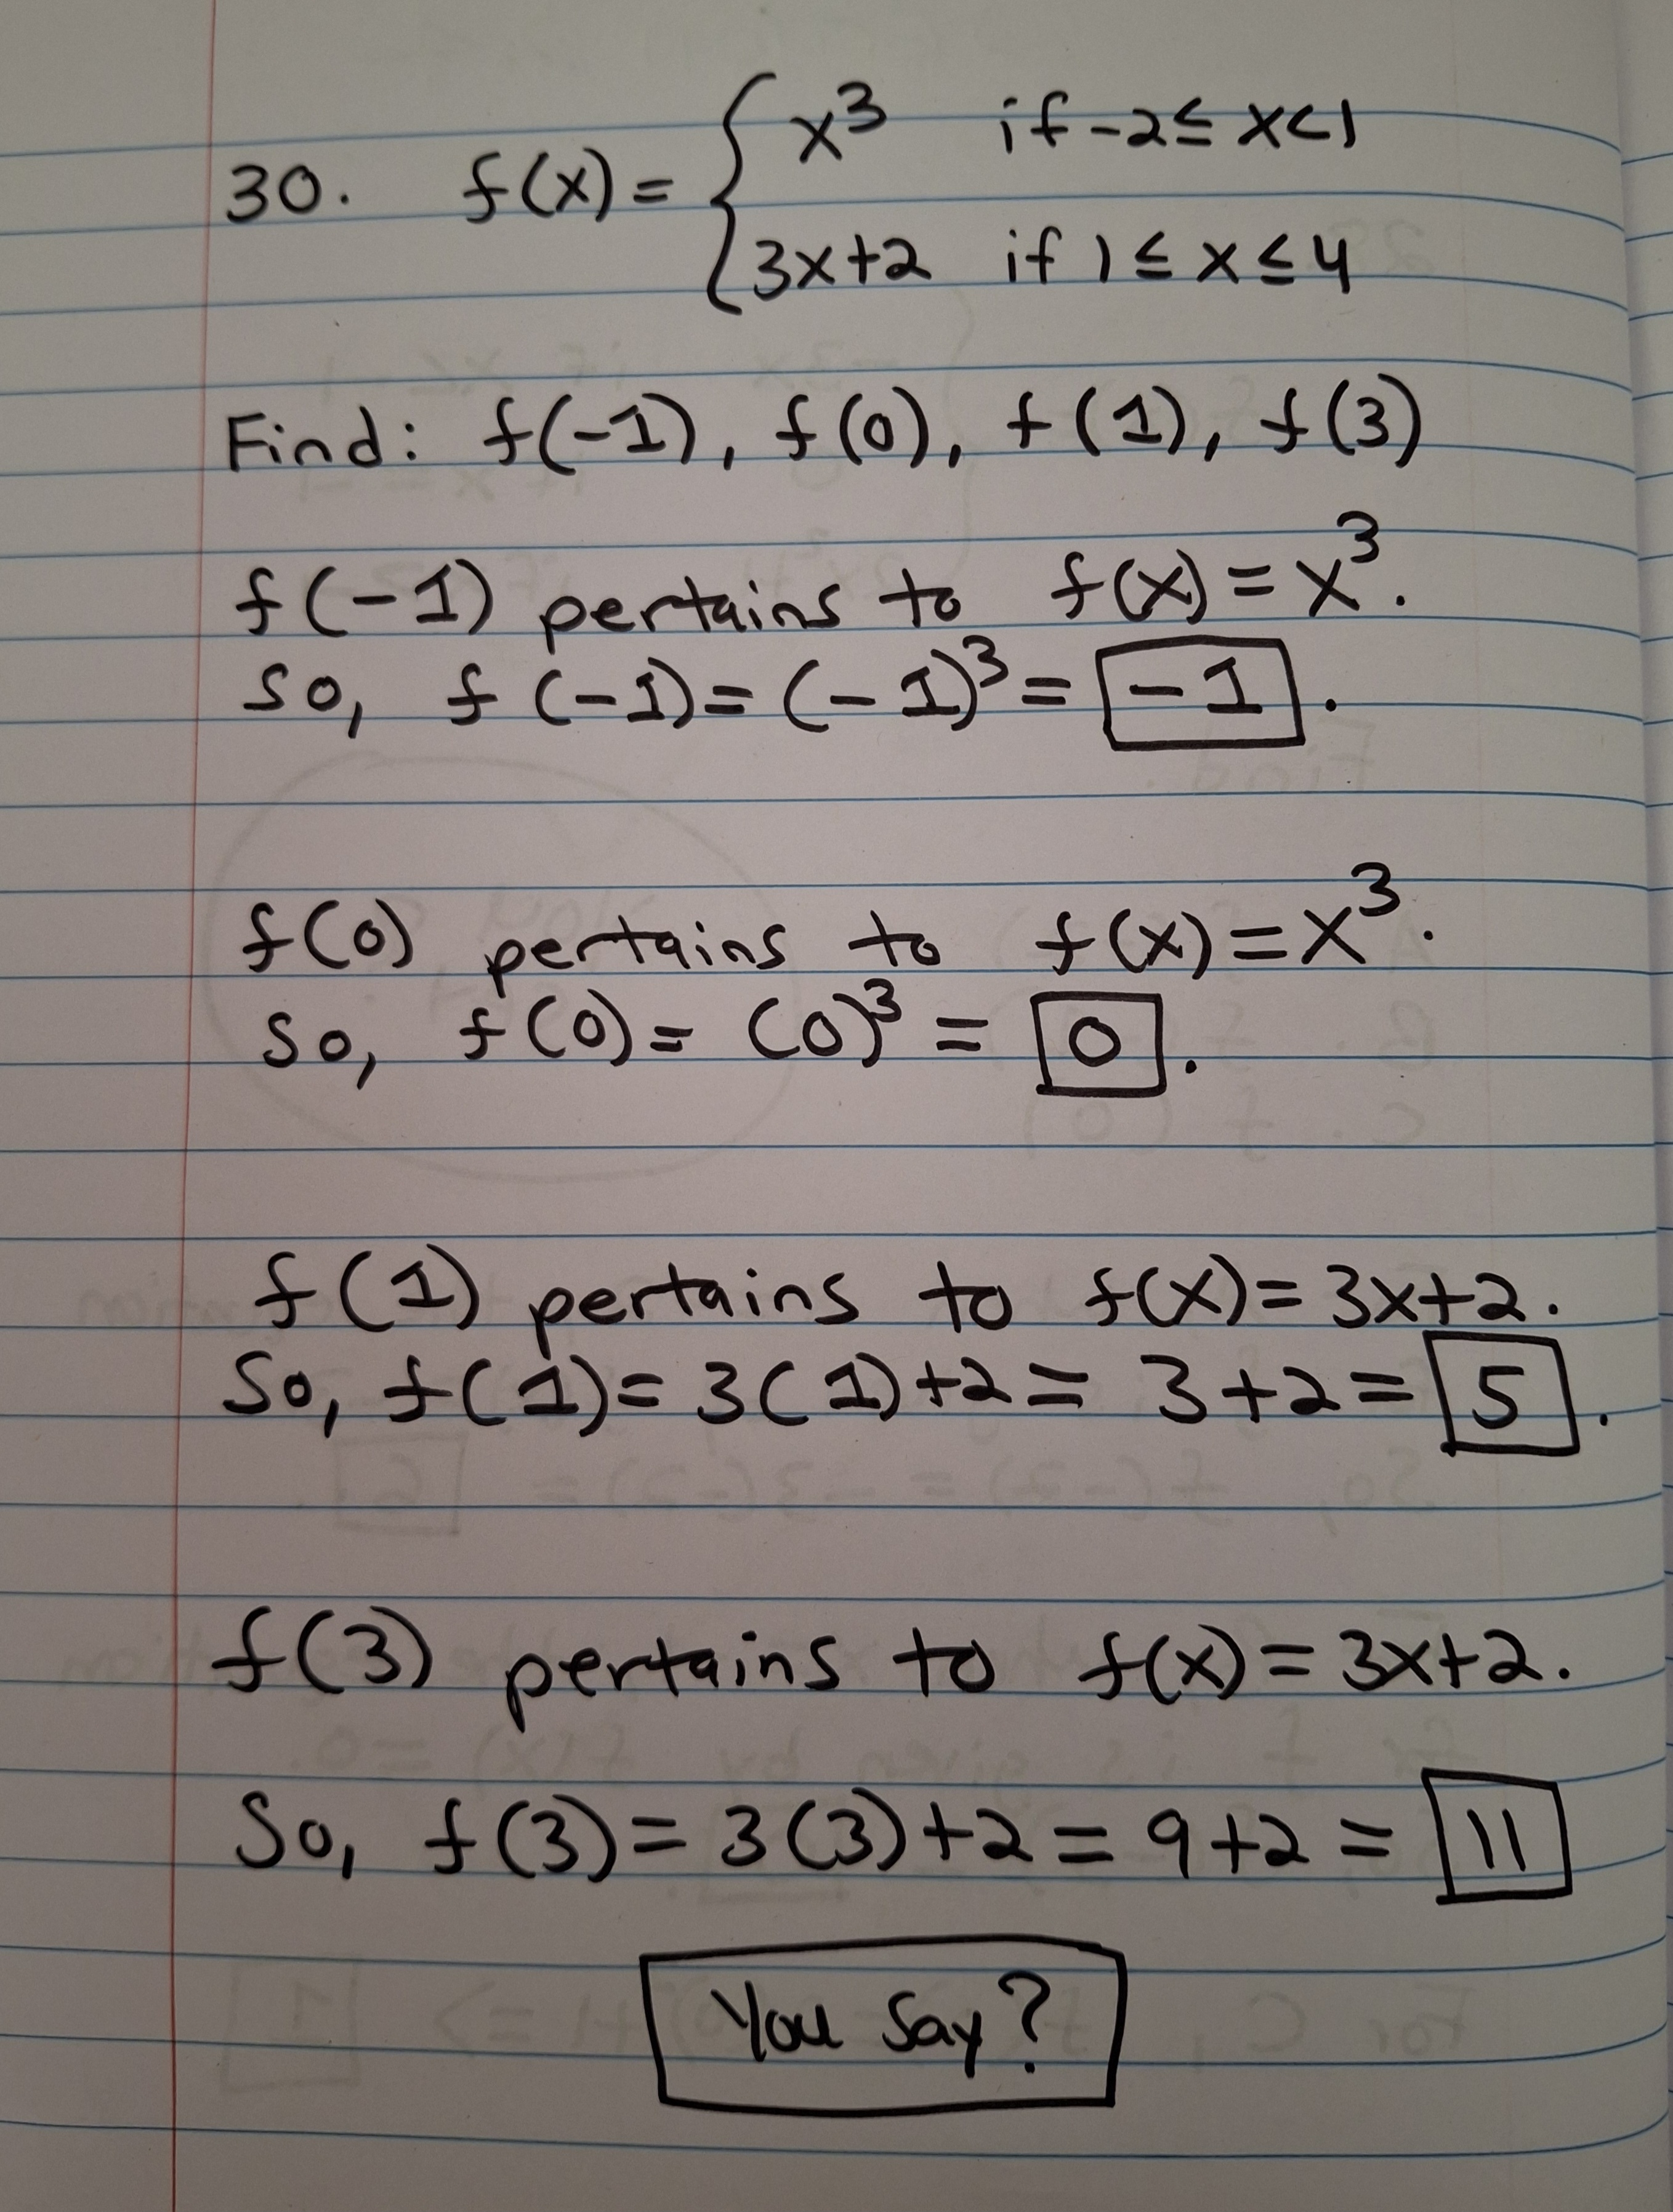 30. f(x) = { x³ if -2 ≤ x < 1
3x+2 if 1 ≤ x ≤ 4
Find: f(-1), f(0), f(1), f(3)
f(-1) pertains to f(x) = x³.
So, f(-1) = (-1)³ = -1.
f(0) pertains to f(x) = x³.
So, f(0) = (0)³ = 0.
f(1) pertains to f(x) = 3x+2.
So, f(1) = 3(1)+2 = 3+2 = 5.
f(3) pertains to f(x) = 3x+2.
So, f(3) = 3(3)+2 = 9+2 = 11
You Say?